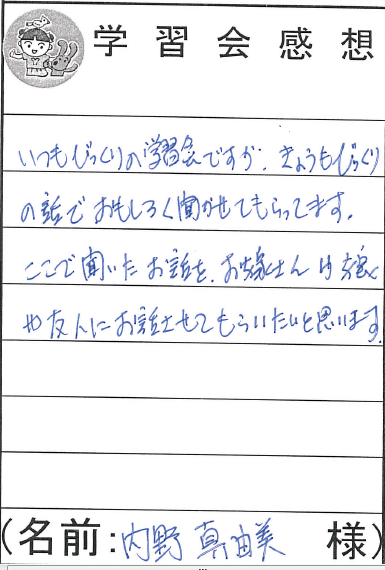 学習会感想
いつもびっくりの学習会ですが、きょうもびっくり
の話でおもしろく聞かせてもらってます。
ここで聞いたお話を、お嫁さん
や友人にお話させてもらいたいと思います。
(名前:内野 真由美 様)